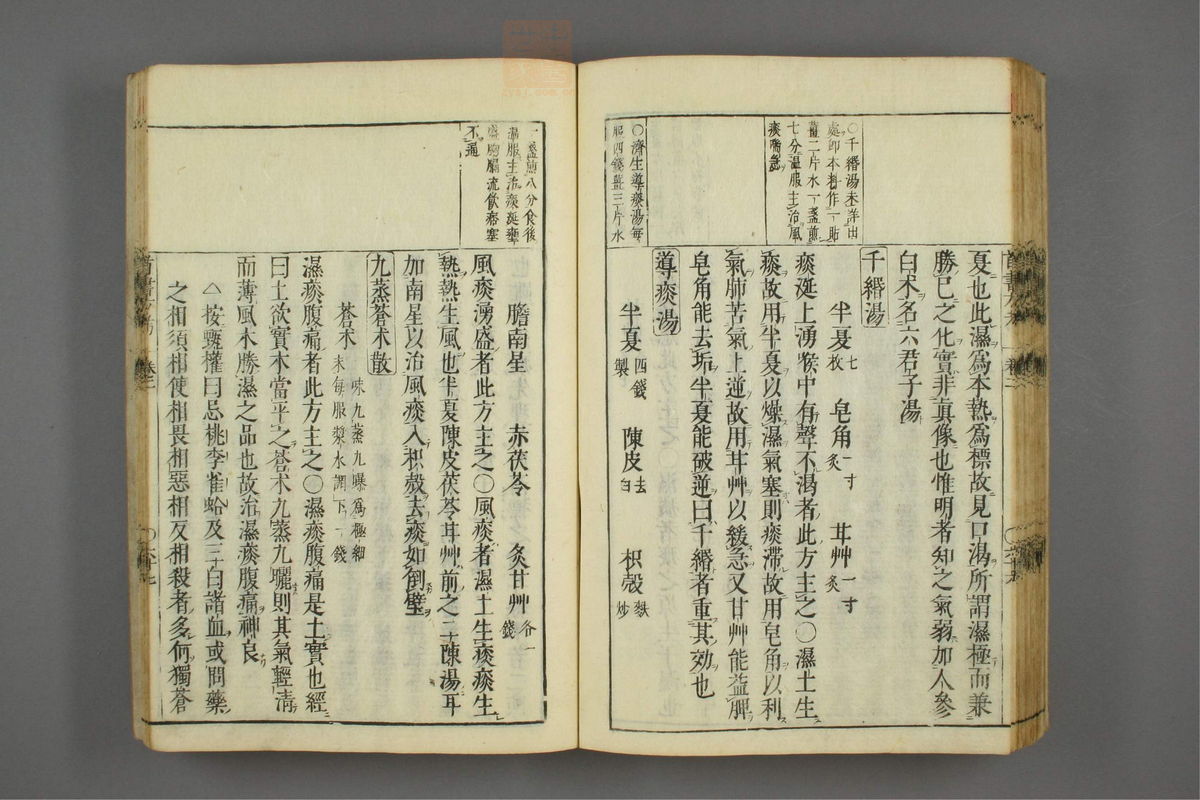 夏也此濕爲本熱爲標故見口渴所謂濕極而兼
勝已之化實非眞像也惟明者知之氣弱加人參
白术名六君子湯
千緡湯
半夏七枚 皂角一寸炙 甘艸一寸炙
痰涎上湧喉中有聲不渴者此方主之○濕土生
痰故用半夏以燥濕氣塞則痰滯故用皂角以利
氣肺苦氣上逆故用甘艸以緩急又甘艸能益脾
皂角能去垢半夏能破逆曰千緡者重其効也
導痰湯
半夏四錢製 陳皮去白 枳殼麩炒
○千緡湯未詳出
處卽本料作一貼
薑二片水一盞煎
七分溫服主治風
痰喘急
○濟生導痰湯每
服四錢薑三片水
一盞煎八分食後
溫服主治痰涎壅
盛胸膈流飮痞塞
不通
膽南星 赤茯苓 炙甘艸各一錢
風痰湧盛者此方主之○風痰者濕土生痰痰生
熱熱生風也半夏陳皮茯苓甘艸前之二陳湯耳
加南星以治風痰入枳殼去痰如倒壁
九蒸蒼术散
蒼术一味九蒸九曝爲極細末每服漿水調下一錢
濕痰腹痛者此方主之○濕痰腹痛是土實也經
曰土欲實木當平之蒼术九蒸九曬則其氣輕淸
而薄風木勝濕之品也故治濕痰腹痛神良
△按甄權曰忌桃李雀蛤及三白諸血或問藥
之相須相使相畏相惡相反相殺者多何獨蒼